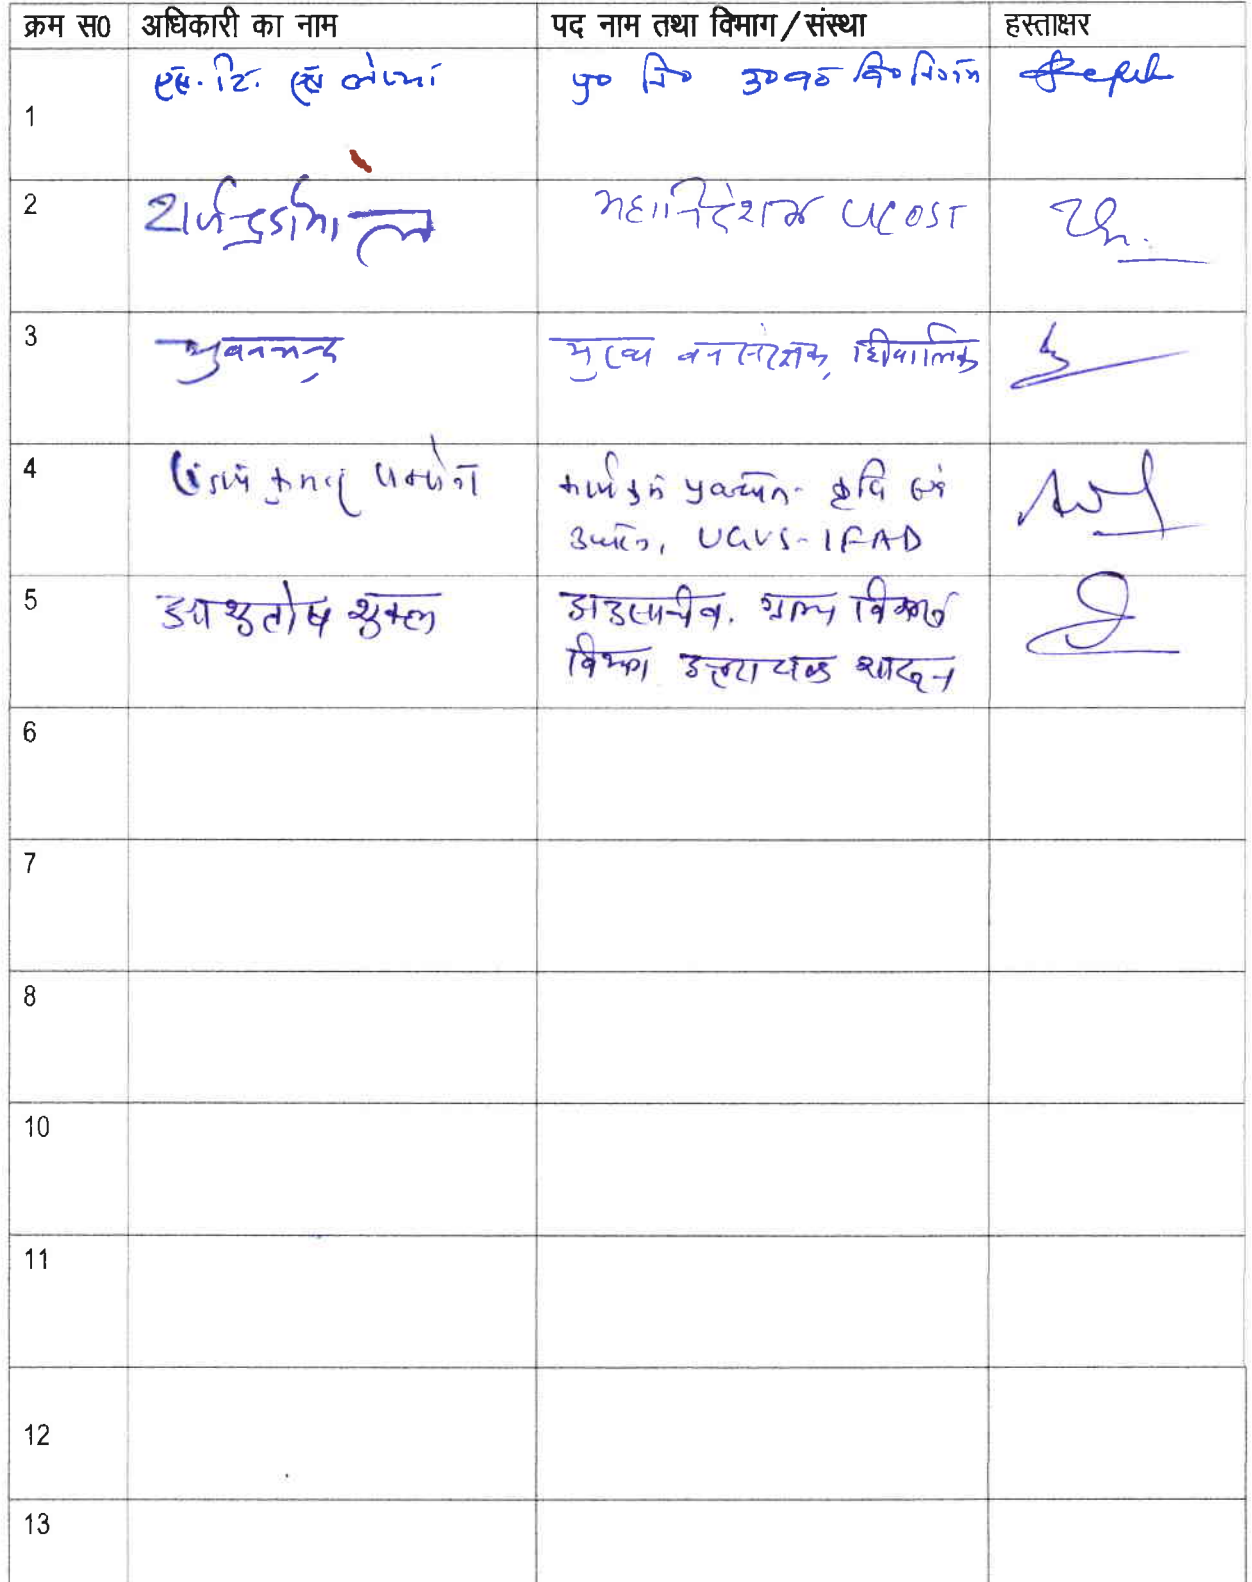 क्रम स0 अधिकारी का नाम पद नाम तथा विभाग/संस्था हस्ताक्षर
1 एस. टि. एस लेप्चा प्र० नि० उ०व० वि० निगम
2 महानिदेशक UCOST
3 भुवनचन्द्र मुख्य वन संरक्षक, शिवालिक
4 कुमार कार्यक्रम प्रबन्धक- कृषि एवं
उद्यान, UGVS-IFAD
5 आशुतोष शुक्ल ग्राम्य विकास
विभाग उत्तराखण्ड शासन
6
7
8
10
11
12
13